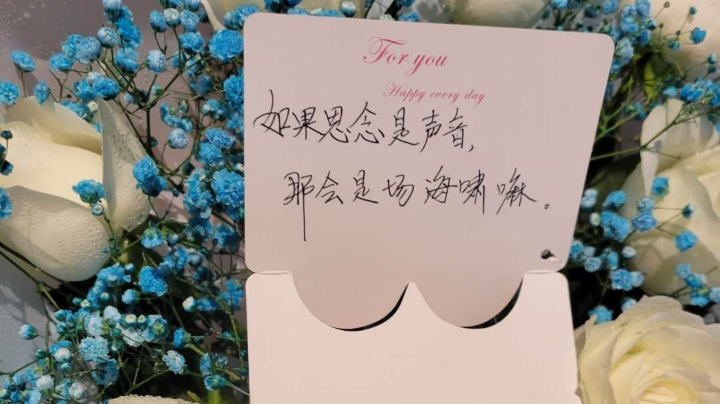 For you
Happy every day
如果思念是声音，
那会是场海啸嘛。